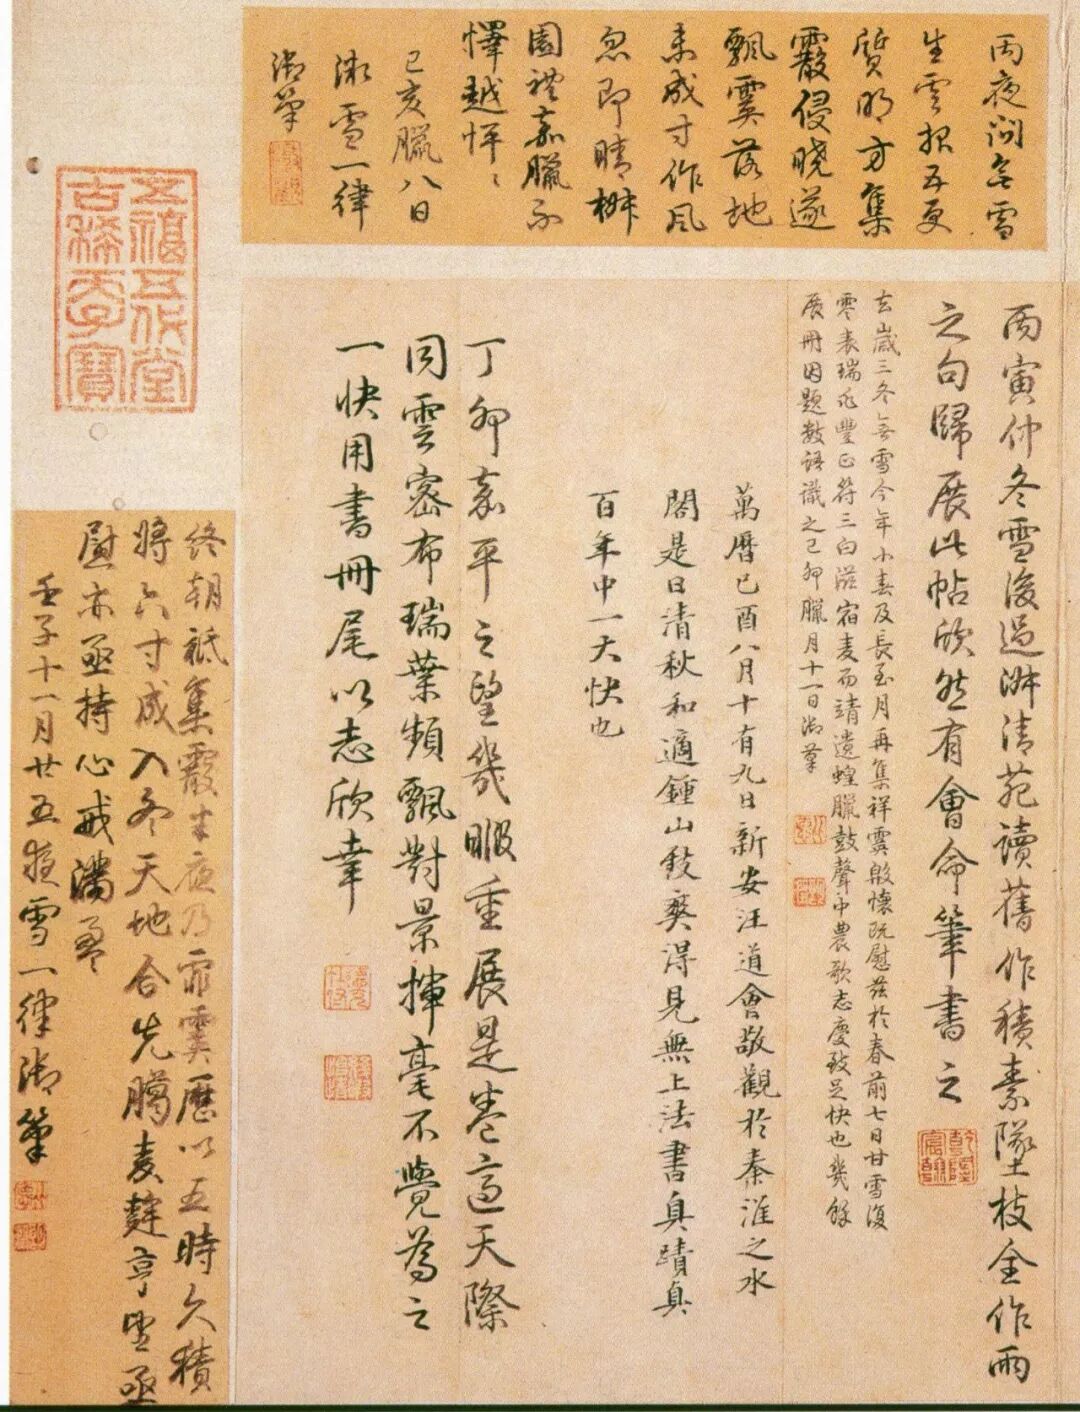 丙夜问무雪
生雲報五更
質明方集
霰侵曉遂
飄霙落地
未成寸作風
忽即晴橆
園禮嘉臘不
懌越怦〻
己亥臘八日
微雪一律
御筆
丙寅仲冬雪後過淋清苑讀舊作積素墜枝全作雨
之句歸展此帖欣然有會命筆書之
去歲三冬無雪今年小春及長至月再集祥霙殷懷既慰茲於春前七日甘雪復
零表瑞兆豐正符三白滋宿麦而靖遺蝗臘鼓聲中農歌志慶致足快也幾餘
展冊因題數語識之己卯臘月十一日御筆
萬曆己酉八月十有九日新安汪道會敬觀於秦淮之水
閣是日清秋和適鍾山致爽得見無上法書真蹟真
百年中一大快也
丁卯嘉平之望幾暇重展是卷適天際
同雲密布瑞葉頻飄對景揮毫不覺為之
一快用書冊尾以志欣幸
五福五代堂
古稀天子寶
終朝祗集霰半夜乃霏霙歷以五時久積
將六寸成入冬天地合先臘麦麰亨望亟
慰亦亟持心戒滿盈
壬子十一月廿五夜雪一律御筆